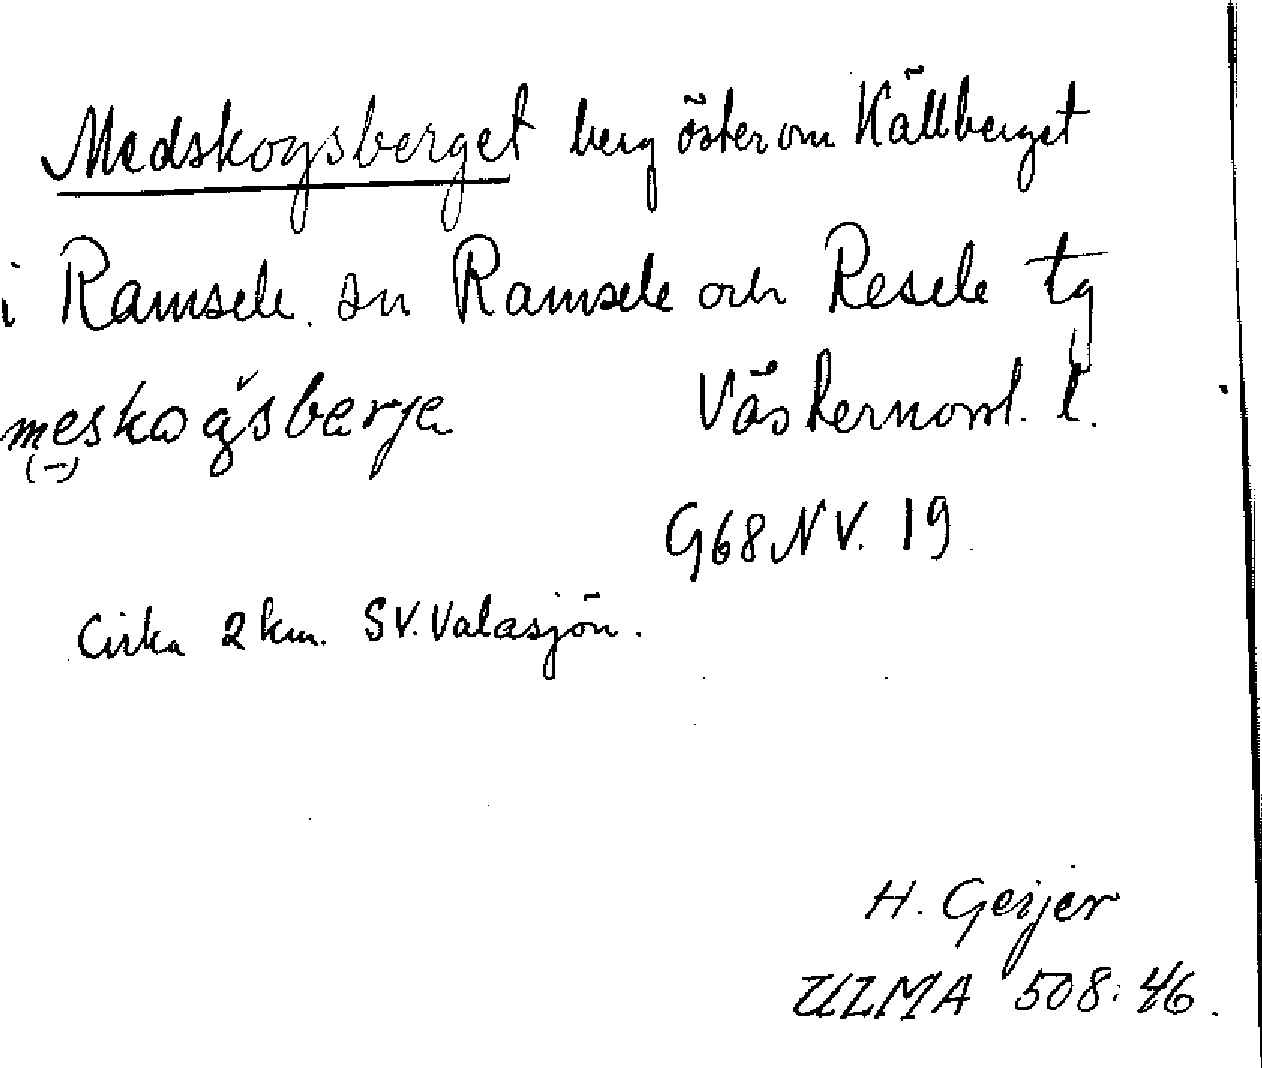 Medskogsberget berg öster om Källberget
i Ramsele sn Ramsele och Resele tg
meskogsbærje Västernorrl. l.
(–)
G68NV. 19
Cirka 2 km. SV. Valasjön.
H. Geijer
ULMA 508:46.